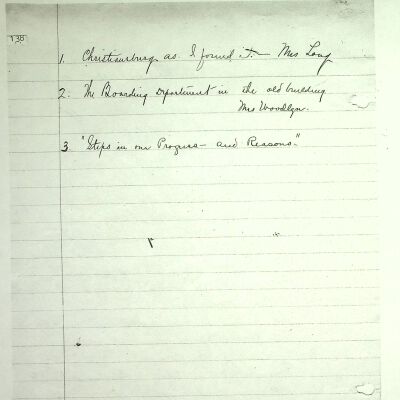 138
1. Christiansburg as I found it — Mrs Long
2. The Boarding Department in the old building
Mrs Woodlyn.
3 "Steps in our Progress — and Reasons."